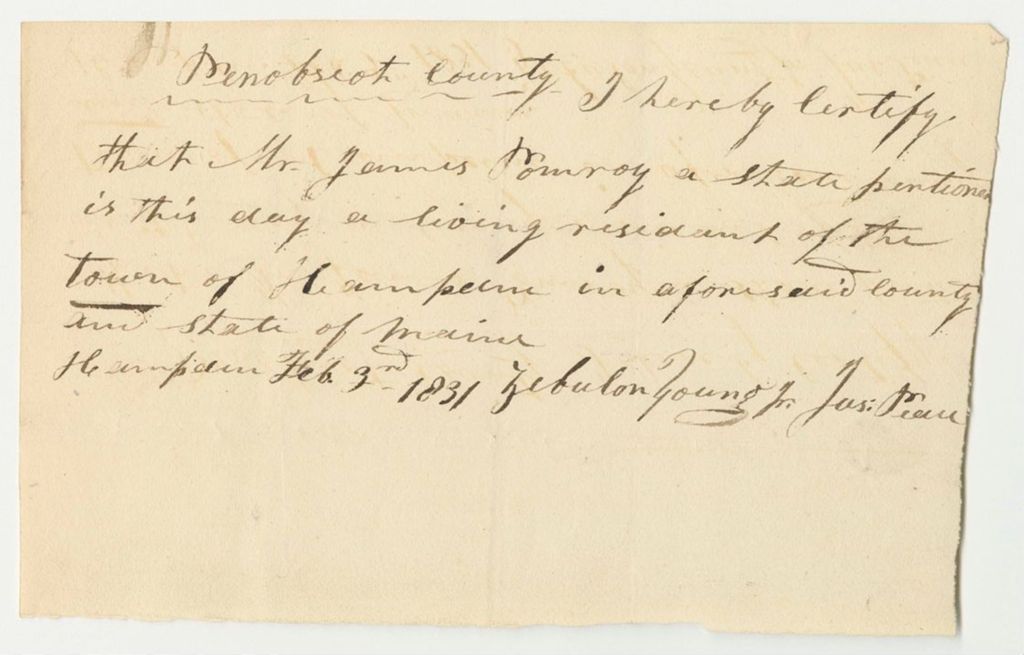 Penobscot County I hereby Certify
that Mr. James Pomroy a state pentioner
is this day a living residant of the
town of Hampden in aforesaid County
and state of Maine
Hampden Feb. 3rd 1831 Zebulon Young Jr. Jus: Peace